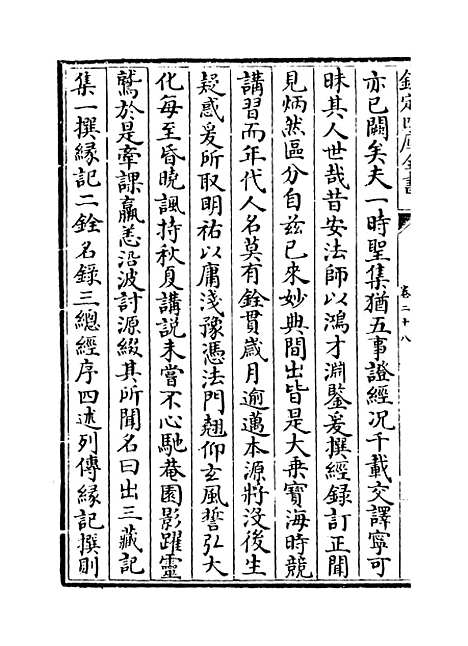 欽定四庫全書
卷二十八
亦已闕矣夫一時聖集猶五事證經况千載交譯寧可
昧其人世哉昔安法師以鴻才淵鑒爰撰經録訂正聞
見炳然區分自兹已來妙典間出皆是大乘寶海時競
講習而年代人名莫有銓貫歲月逾邁本源將没後生
疑惑爰所取明祐以庸淺豫憑法門翹仰玄風誓弘大
化每至昏曉諷持秋夏講説未嘗不心馳菴園影躍靈
鷲於是牽課羸恙沿波討源綴其所聞名曰出三藏記
集一撰縁記二銓名錄三總經序四述列傳縁記撰則